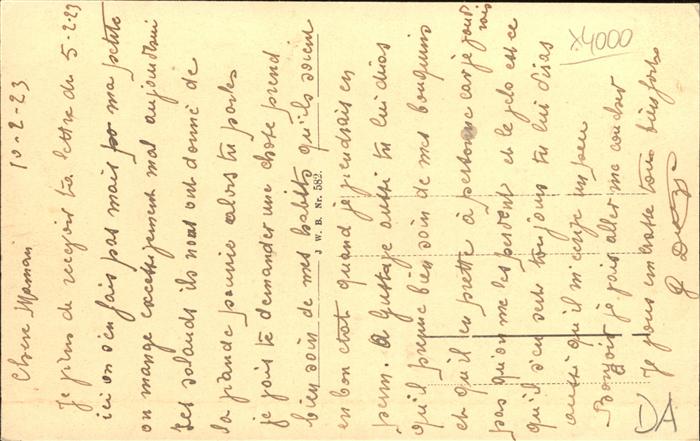 10-2-23
Chère Maman
Je viens de reçevoir ta lettre du 5-2-23
ici on s'en fais pas mais pour ma petite
on mange excessivement mal aujourd'hui
les salauds ils nous ont donné de
la viande pourrie alors tu parles
je vais te demander une chose prend
bien soin de mes habits qu'ils soient
en bon etat quand je viendrais en
perm. A Gustave aussi tu lui diras
qu'il prenne bien soin de mes bouquins
et qu'il en prette à personne car je voudrais
pas qu'on me les perdent et le velo est ce
qu'il s'en sert toujours tu lui diras
aussi qu'il m'ecrive un peu
Bonsoir je vais aller me coucher
Je vous embrasse tous bien fort
G
J. W. B. Nr. 582.
x4000
DA